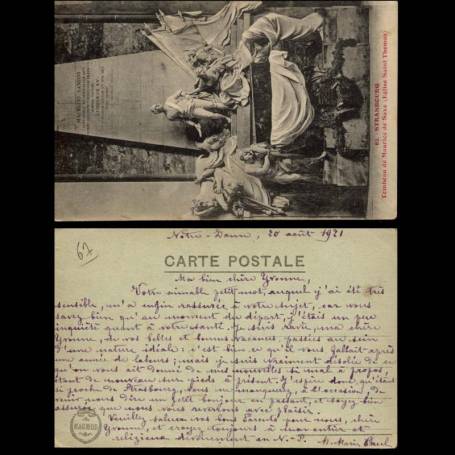 MAURITIO SAXONI
62. STRASBOURG
Tombeau de Maurice de Saxe (Eglise Saint Thomas)
67
Notre-Dame, 20 août 1921
CARTE POSTALE
Ma bien chère Yvonne,
Votre aimable petit mot, auquel j'ai été très
sensible, m'a enfin rassurée à votre sujet, car vous
savez bien qu'au moment du départ, j'étais un peu
inquiète quant à votre santé. Je suis ravie, ma chère
Yvonne, de vos belles et bonnes vacances, passées au sein
d'une nature idéale; c'est bien ce qu'il vous fallait après
une année de labeur; mais je suis vraiment désolée de ce
qu'on vous ait donné de mes nouvelles si mal à propos,
étant de nouveau sur pieds à présent. J'espère donc qu'étant
si proche de Strasbourg, vous ne manquerez, à l'occasion, de
venir nous dire un petit bonjour en passant, et soyez bien
assurée que nous vous reverrons avec plaisir.
Veuillez saluer vos bons Parents pour nous, chère
Yvonne, et croyez toujours à mon entier et
religieux dévouement en N.-S.
M. Marie Paul